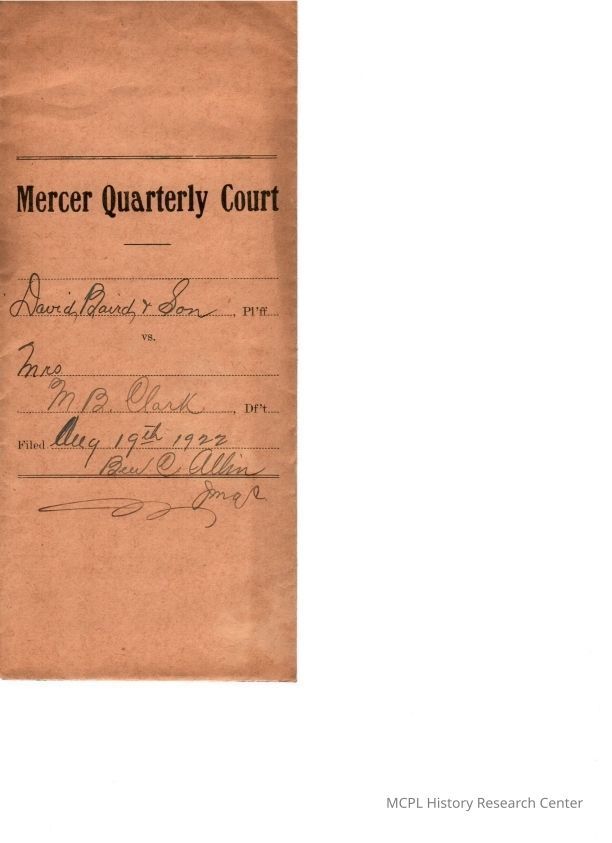 Mercer Quarterly Court
David Baird & Son, Pl'ff.
vs.
Mrs
M. B. Clark, Df't.
Filed Aug 19th 1922
Ben C. Allin
MCPL History Research Center